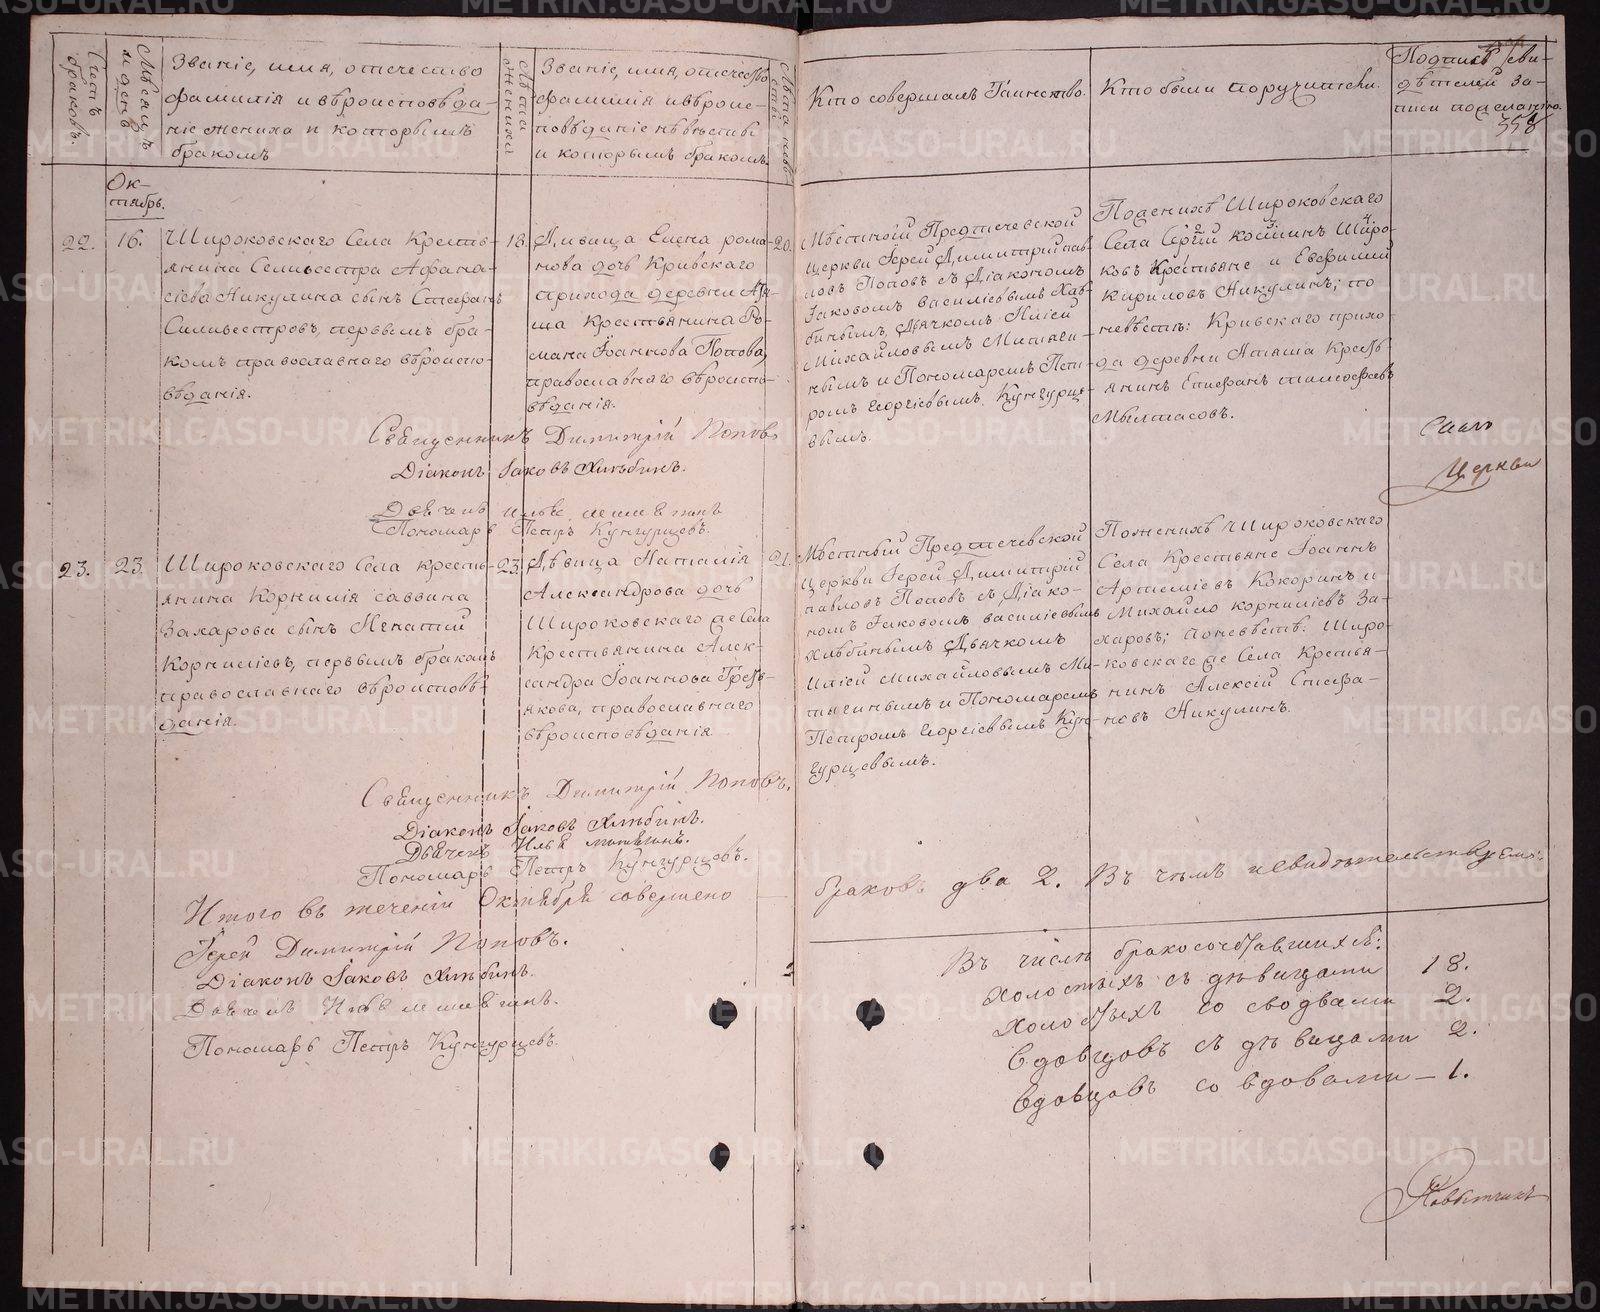 Счетъ браковъ.
Мѣсяцъ и день
Званіе, имя, отечество
фамилія и вѣроисповѣда-
ніе жениха и которымъ
бракомъ
Лѣта жениха
Званіе, имя, отечество
фамилія и вѣроис-
повѣданіе невѣсты
и которымъ бракомъ.
Лѣта невѣсты
Кто совершалъ Таинство.
Кто были поручители.
Подпись сви-
дѣтелей за-
писи по желанію.
358
Ок-
тябрь.
22.
16.
Широковскаго Села Кресть-
янина Сельвестра Афана-
сіева Никулина сынъ Стефанъ
Сильвестровъ, первымъ бра-
комъ православнаго вѣроиспо-
вѣданія.
18.
Дивица Елена рома-
нова дочь Кривскаго
прихода деревни Атя-
ша Крестьянина Ро-
мана Іоаннова Попова,
православнаго вѣроиспо-
вѣданія.
20.
Мѣстной Предтечевской
Церкви Іерей Димитрій пав-
ловъ Поповъ съ Діакономъ
Іаковомъ Василіевымъ Хлѣ-
бинымъ, Дьячкомъ Иліей
Михайловымъ Митяги-
нымъ и Пономаремъ Пет-
ромъ Георгіевымъ Кунгурце-
вымъ.
Поженихѣ Широковскаго
Села Сергій Косминъ Широ-
ковъ Крестьяне и Евфимій
Кириловъ Никулинъ; по
невѣстѣ: Кривскаго прихо-
да деревни Атяша Кресть-
янинъ Епифанъ тимофѣевъ
Мылтасовъ.
Священникъ Димитрій Поповъ
Діаконъ Іаковъ Хлѣбинъ.
Дьячекъ Илья Митягинъ
Пономарь Петръ Кунгурцевъ.
Церкви
23.
23.
Широковскаго Села кресть-
янина Корнилія саввина
Захарова сынъ Игнатій
Корниліевъ, первымъ бракомъ
православнаго вѣроисповѣ-
данія.
23.
Дѣвица Наталія
Александрова дочь
Широковскаго же Села
Крестьянина Алек-
сандра Іоаннова Трет-
якова, православнаго
вѣроисповѣданія.
21.
Мѣстный Предтечевской
Церкви Іерей Димитрій
павловъ Поповъ съ Діако-
номъ Іаковомъ василіевымъ
Хлѣбинымъ Дьячкомъ
Иліей Михайловымъ Ми-
тягинымъ и Пономаремъ
Петромъ Георгіевымъ Кун-
гурцевымъ.
Поженихѣ Широковскаго
Села Крестьяне Іоаннъ
Артеміевъ Кокоринъ и
Михайло Корниліевъ За-
харовъ; поневѣстѣ: Широ-
ковскаго же Села Крестья-
нинъ Алексѣй Стефа-
новъ Никулинъ.
Священникъ Димитрій Поповъ.
Діаконъ Іаковъ Хлѣбинъ.
Дьячекъ Илья Митягинъ.
Пономарь Петръ Кунгурцовъ.
Итого въ теченіи Октября совершено
браковъ два 2. Въ чемъ и свидѣтельствуемъ:
Іерей Димитрій Поповъ.
Діаконъ Іаковъ Хлѣбинъ.
Дьячекъ Илья Митягинъ.
Пономарь Петръ Кунгурцевъ.
Въ числѣ бракосочетавшихся:
Холостыхъ съ дѣвицами 18.
Холостыхъ со вдовами 2.
Вдовцовъ съ дѣвицами 2.
Вдовцовъ со вдовами — 1.
METRIKI.GASO-URAL.RU